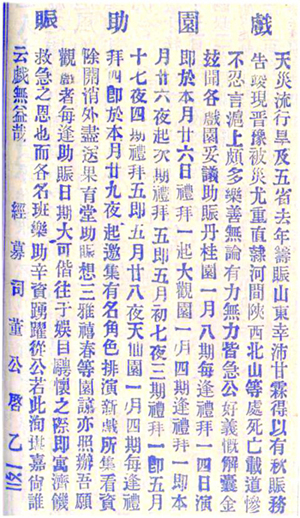 戲園助賑
天災流行旱及五省去年籌賑山東幸沛甘霖得以有秋賑務
告竣現晉豫被災尤重直隸河間陝西北山等處死亡載道慘
不忍言滬上頗多樂善無論有力無力皆急公好義慨解囊金
茲聞各戲園妥議助賑丹桂園一月八期每逢禮拜一四日演
即於本月廿六日禮拜一起大觀園一月四期逢禮拜一即本
月廿六夜起次期禮拜五即五月初七夜三期禮拜一即五月
十七夜四期禮拜五即五月廿八夜天仙園一月四期每逢禮
拜四即於本月廿九夜起邀集有名角色排演新戲所集看資
除開消外盡送果育堂助賑想三雅禧春等園諒亦照辦吾願
觀劇者每逢助賑日期大可偕往于娛目騁懷之際即寓濟饑
救急之思也而各名班樂助辛資踴躍從公若此洵堪嘉尚誰
云戲無益哉 經募司董公啓